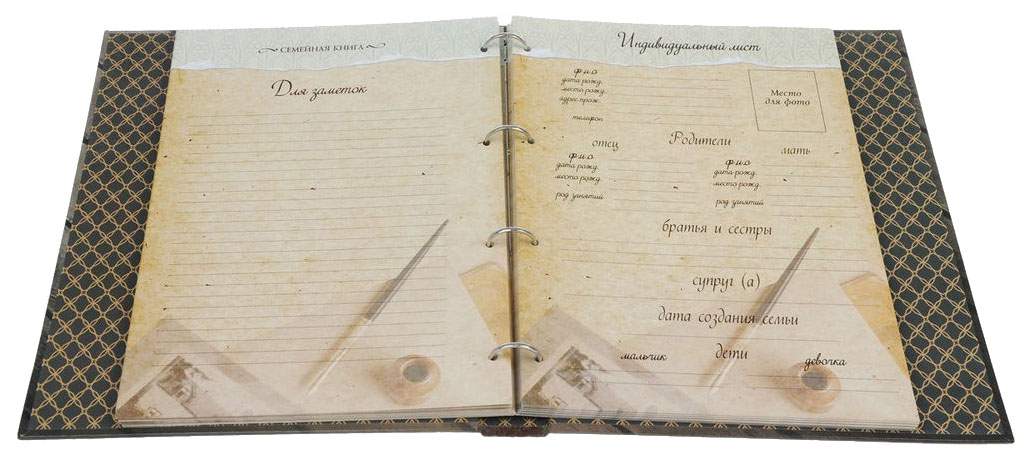 СЕМЕЙНАЯ КНИГА
Для заметок
Индивидуальный лист
ф.и.о
дата рожд.
место рожд.
адрес прож.
телефон
Место
для фото
Родители
отец
мать
ф.и.о
дата рожд.
место рожд.
род занятий
ф.и.о
дата рожд.
место рожд.
род занятий
братья и сестры
супруг (а)
дата создания семьи
дети
мальчик
девочка